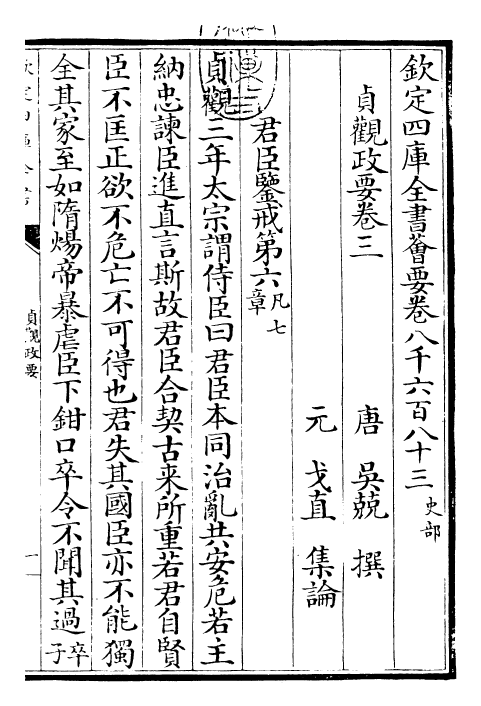 欽定四庫全書薈要卷八千六百八十三 史部
貞觀政要卷三
唐 吳兢 撰
元 戈直 集論
君臣鑒戒第六凡七章
貞觀三年太宗謂侍臣曰君臣本同治亂共安危若主
納忠諫臣進直言斯故君臣合契古来所重若君自賢
臣不匡正欲不危亡不可得也君失其國臣亦不能獨
全其家至如隋煬帝暴虐臣下鉗口卒令不聞其過卒子
貞觀政要
一